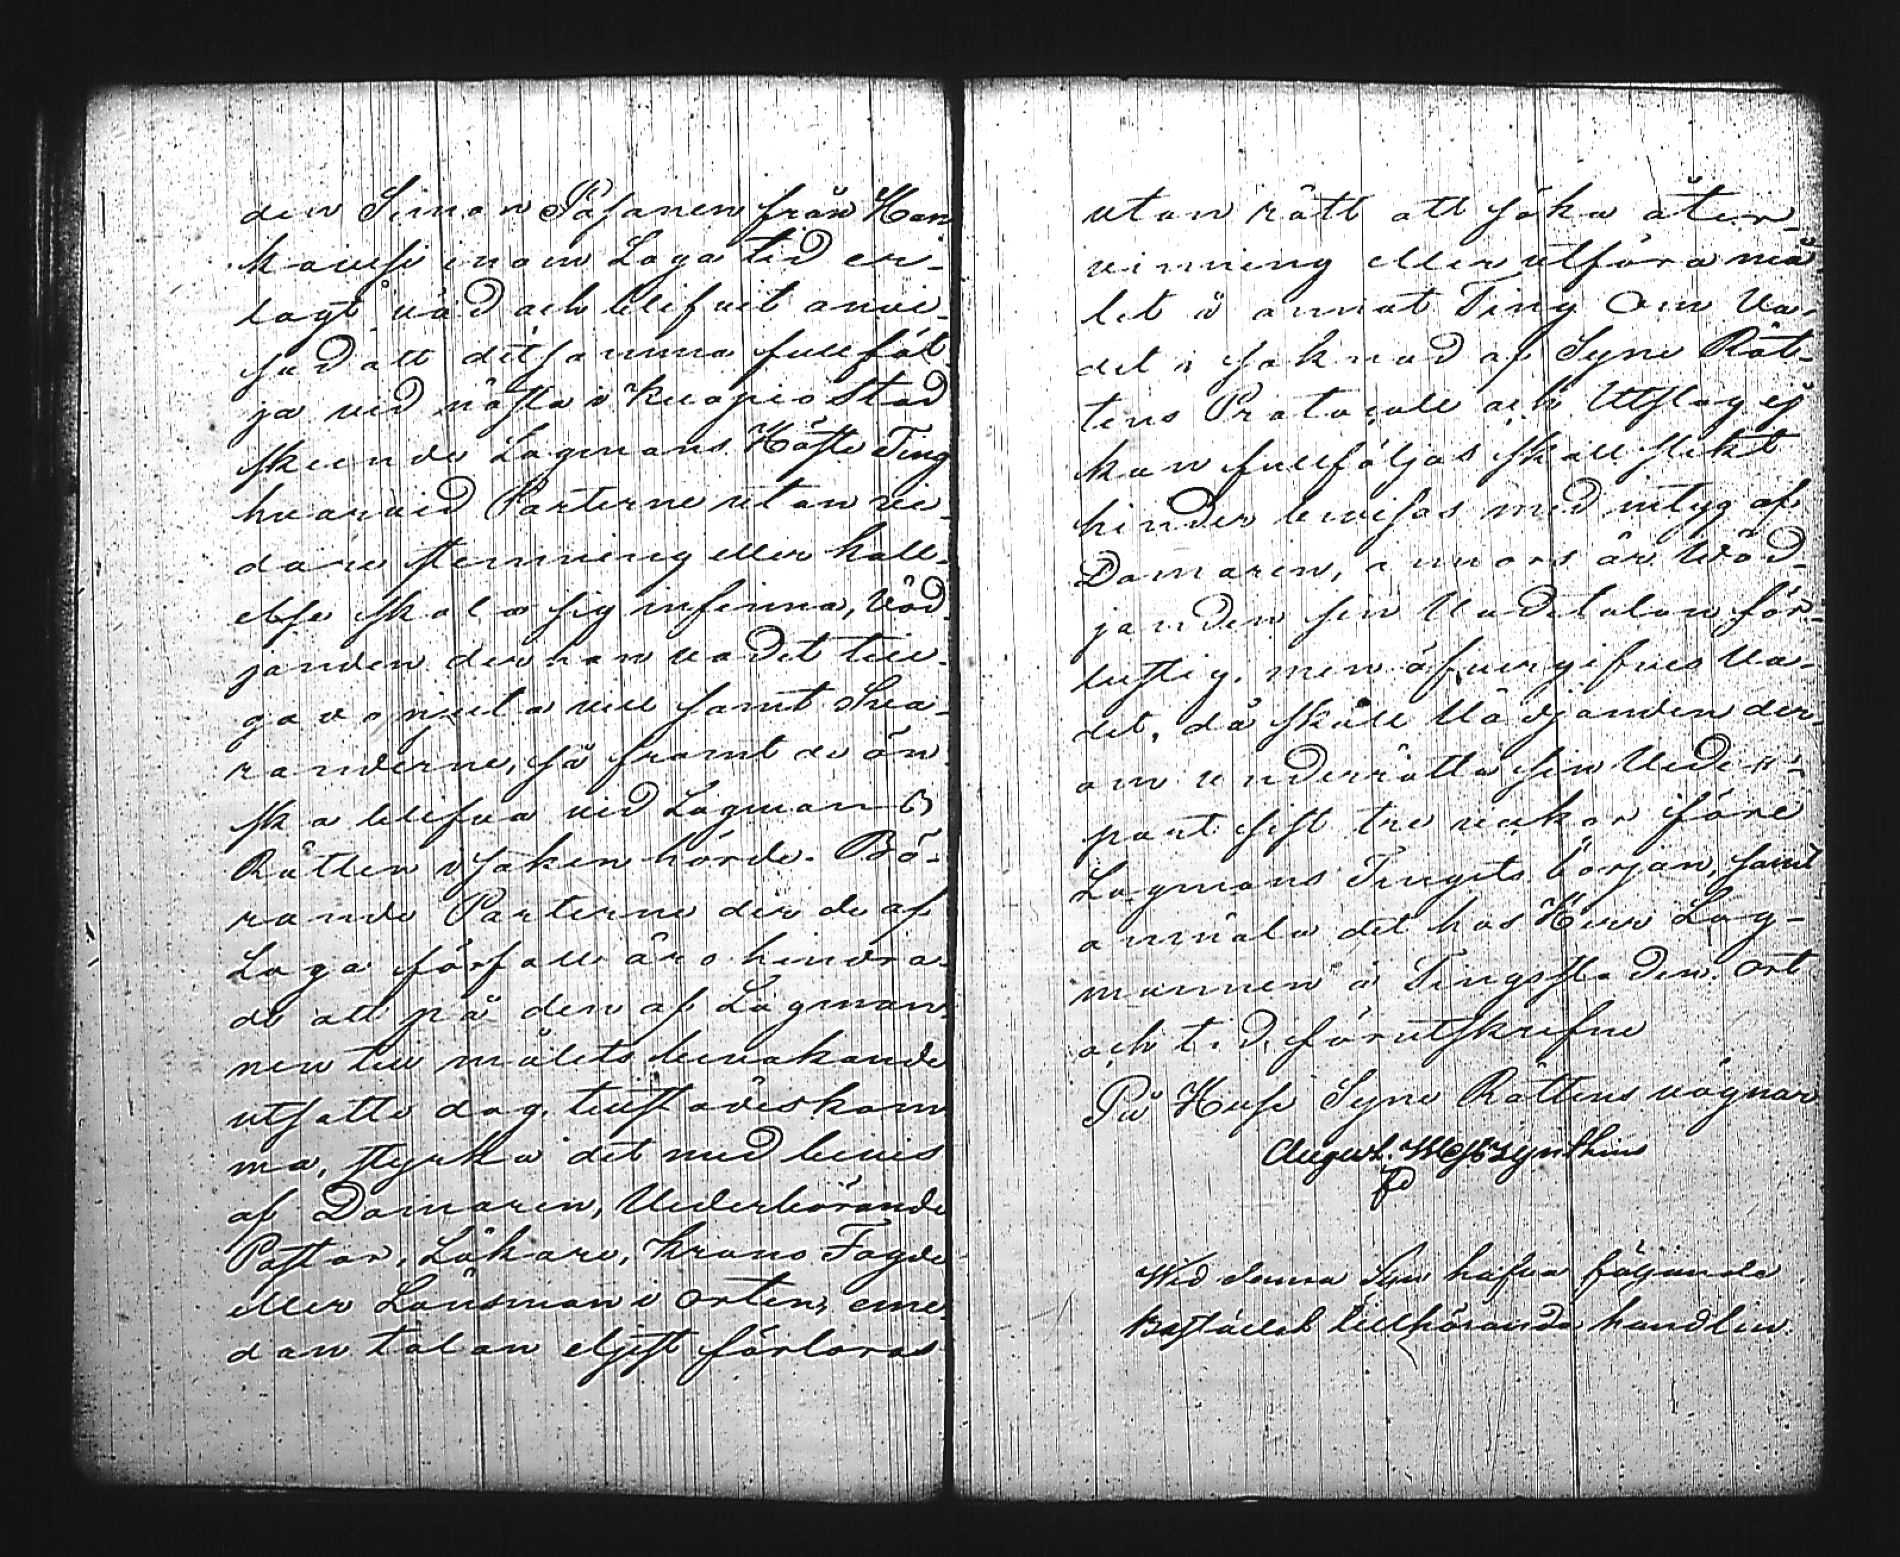 den Simon Påsanen från Han
kavesi inom Laga tid er-
lagt vad och blifvit anvi-
sad att detsamma fullföl-
ja vid nästa i Kuopio Stad
skeende Lagmans Höste Ting
hvarvid Parterne utan vi-
dare stemning eller kall-
else skola sig infinna, Väd-
janden der han vadet till-
godonjuta vill samt Sva-
randerne, så framt de ön-
ska blifva vid Lagmans
Rätten i saken hörde. Bö-
rande Parterne der de af
Laga förfall äro hindra-
de att på den af Lagman-
nen till målets bevakande
utsatte dag tillstädeskom
ma, styrka det med bevis
af Domaren, Vederbörande
Pastor, Läkare, Krono Fogde
eller Länsman i orten, eme-
dan talan eljest förloras
utan rätt att söka åter-
vinning eller utföra må-
let å annat Ting. Om Va-
det i saknad af Syne Rät-
tens Protocoll och Utslag ej
kan fullföljas skall slikt
hinder bevisas med intyg af
Domaren, annars är Wäd-
janden sin Vadetalan för-
lustig. men öfvergifves Va-
det, då skall Vädjanden der-
om underrätta sin Veder-
part sist tre veckor före
Lagmans Tingets början, samt
anmäla det hos Herr Lag-
mannen å Tingsstaden. Ort
och tid förutskrefne
På Husi Syne Rättens vägnar
August
Wid denna Syn hafva följande
Bostället tillhörande handlin-